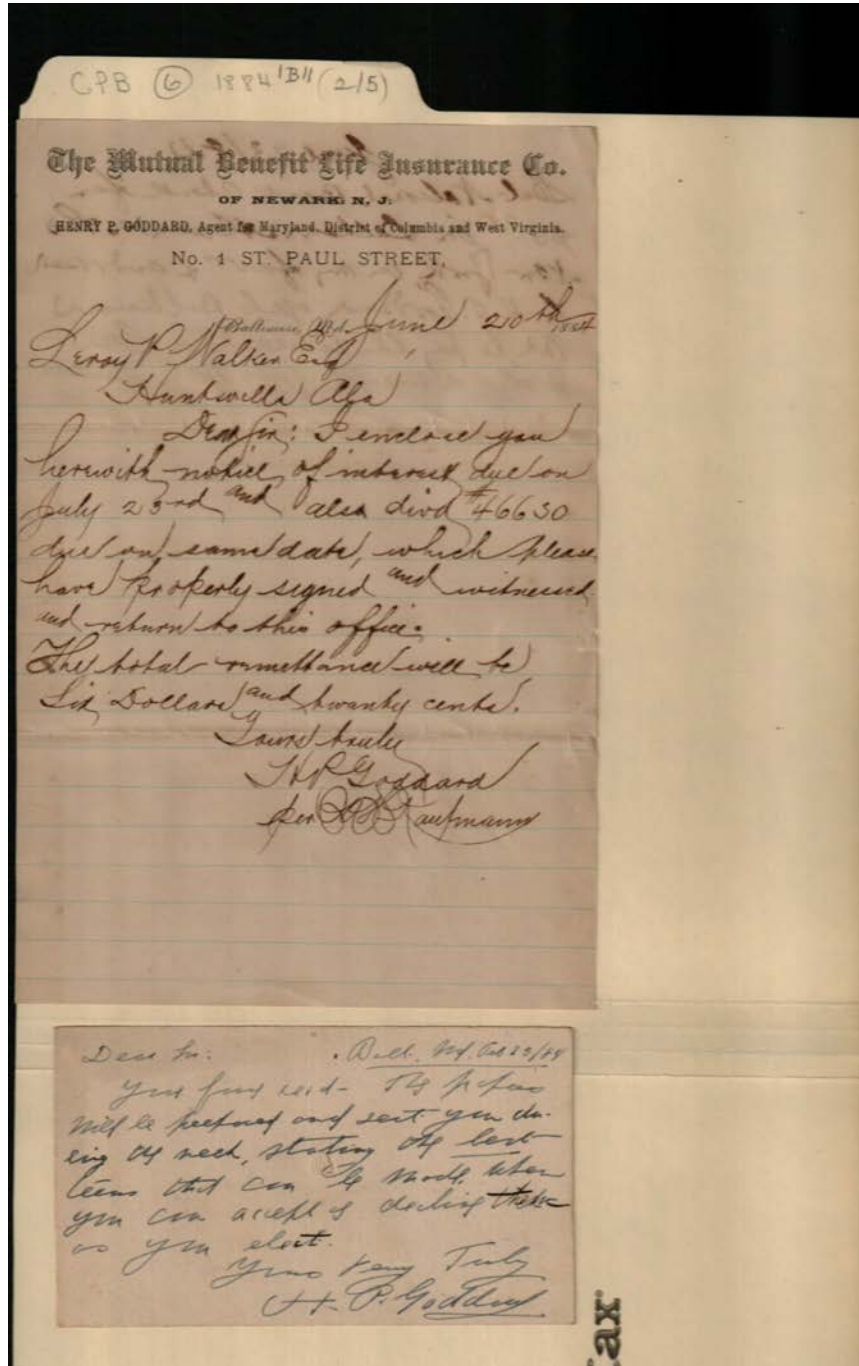 CPB 6 1884 "B" (2/5)
The Mutual Benefit Life Insurance Co.
OF NEWARK, N. J.
HENRY P. GODDARD, Agent for Maryland, District of Columbia and West Virginia.
No. 1 ST. PAUL STREET,
Baltimore, Md. June 20th 1884
Leroy P. Walker Esq
Huntsville Ala
Dear Sir: I enclose you
herewith notice of interest due on
July 23rd and also divd #46630
due on same date, which please
have properly signed and witnessed
and return to this office.
The total remittance will be
Six Dollars and twenty cents.
Yours truly
H P Goddard
per Kaufmann
Dear Sir: Balt. Md. Oct 23/84
Your favor recd - The papers
will be prepared and sent you du-
ring the week, stating the best
terms that can be made, when
you can accept or decline these
as you elect.
Yours Very Truly
H. P. Goddard
ax